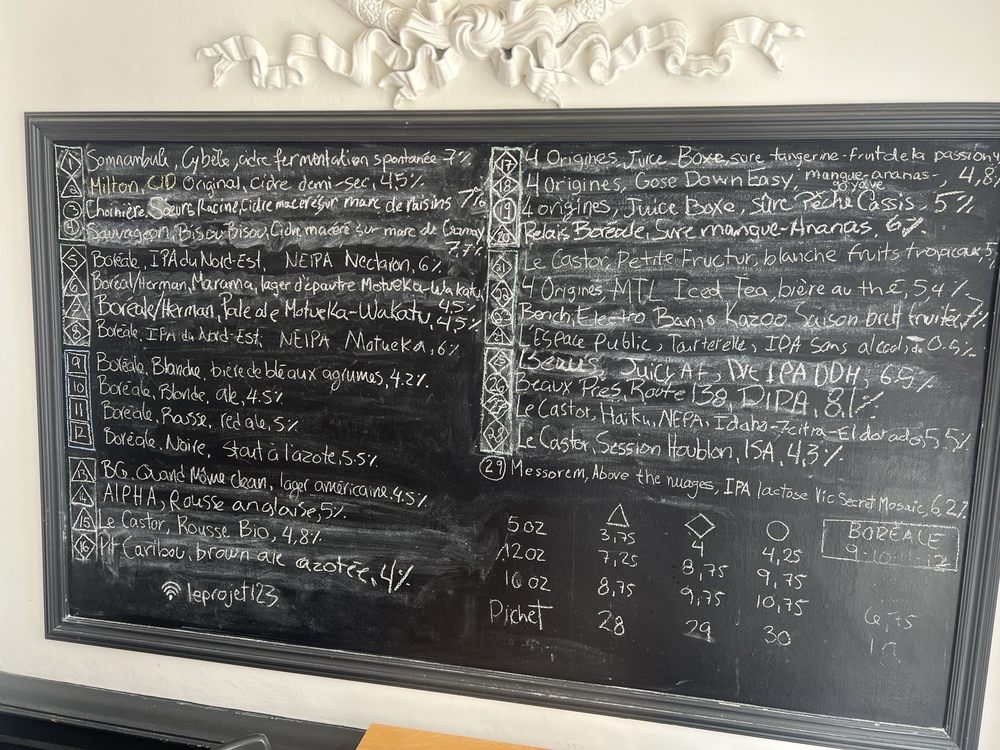 1 Somnambule, Cybèle, cidre fermentation spontanée 7%
2 Milton, CID Original, Cidre demi-sec, 4,5%
3 Choinière, Soeurs Racine, Cidre macéré sur marc de raisins 7%
4 Sauvageon, Bisou Bisou, Cidre macéré sur marc de
7.7%
5 Boréale, IPA du Nord-Est, NEIPA Nectaron, 6%
6 Boréal/Herman, Marama, lager d'épautre Motueka-Wakatu
4,5%
7 Boréale/Herman, Pale ale Motueka-Wakatu, 4,5%
8 Boréale, IPA du Nord-Est, NEIPA Motueka, 6%
9 Boréale, Blanche, bière de blé aux agrumes, 4.2%
10 Boréale, Blonde, ale, 4.5%
11 Boréale, Rousse, red ale, 5%
12 Boréale, Noire, stout à l'azote, 5.5%
13 BG, Quand Môme clean, lager américaine 4.5%
14 ALPHA, Rousse anglaise, 5%
15 Le Castor, Rousse Bio, 4,8%
16 Pit Caribou, brown ale azotée, 4%
leprojet123
17 4 Origines, Juice Boxe, sure tangerine-fruit de la passion, 4
18 4 Origines, Gose Down Easy, mangue-ananas-goyave, 4,8%
19 4 origines, Juice Boxe, sûre Pêche Cassis, 5%
20 Relais Boréale, Sure mangue-Ananas, 6%
21 Le Castor, Petite Fructur, blanche fruits tropicaux, 5
22 4 Origines, MTL Iced Tea, bière au thé, 5,4%
23 Bench, Electro Banjo Kazoo Saison brett fruitée, 7%
24 L'Espace Public, Tarterelle, IPA Sans alcool, 0.5%
25 Juicy AF, IPA DDH, 6.5%
26 Beaux Prés, Route 138, DIPA, 8,1%
27 Le Castor, Haiku, NEPA, Idaho-7 citra-El dorado, 5,5%
28 Le Castor, Session Houblon, ISA, 4,3%
29 Messorem, Above the nuages, IPA lactose Vic Secret Mosaic, 6,2%
△ ◇ ○ BORÉALE
9-10 12
5 oz 3,75 4 4,25
12 oz 7,25 8,75 9,75
16 oz 8,75 9,75 10,75 6,75
Pichet 28 29 30